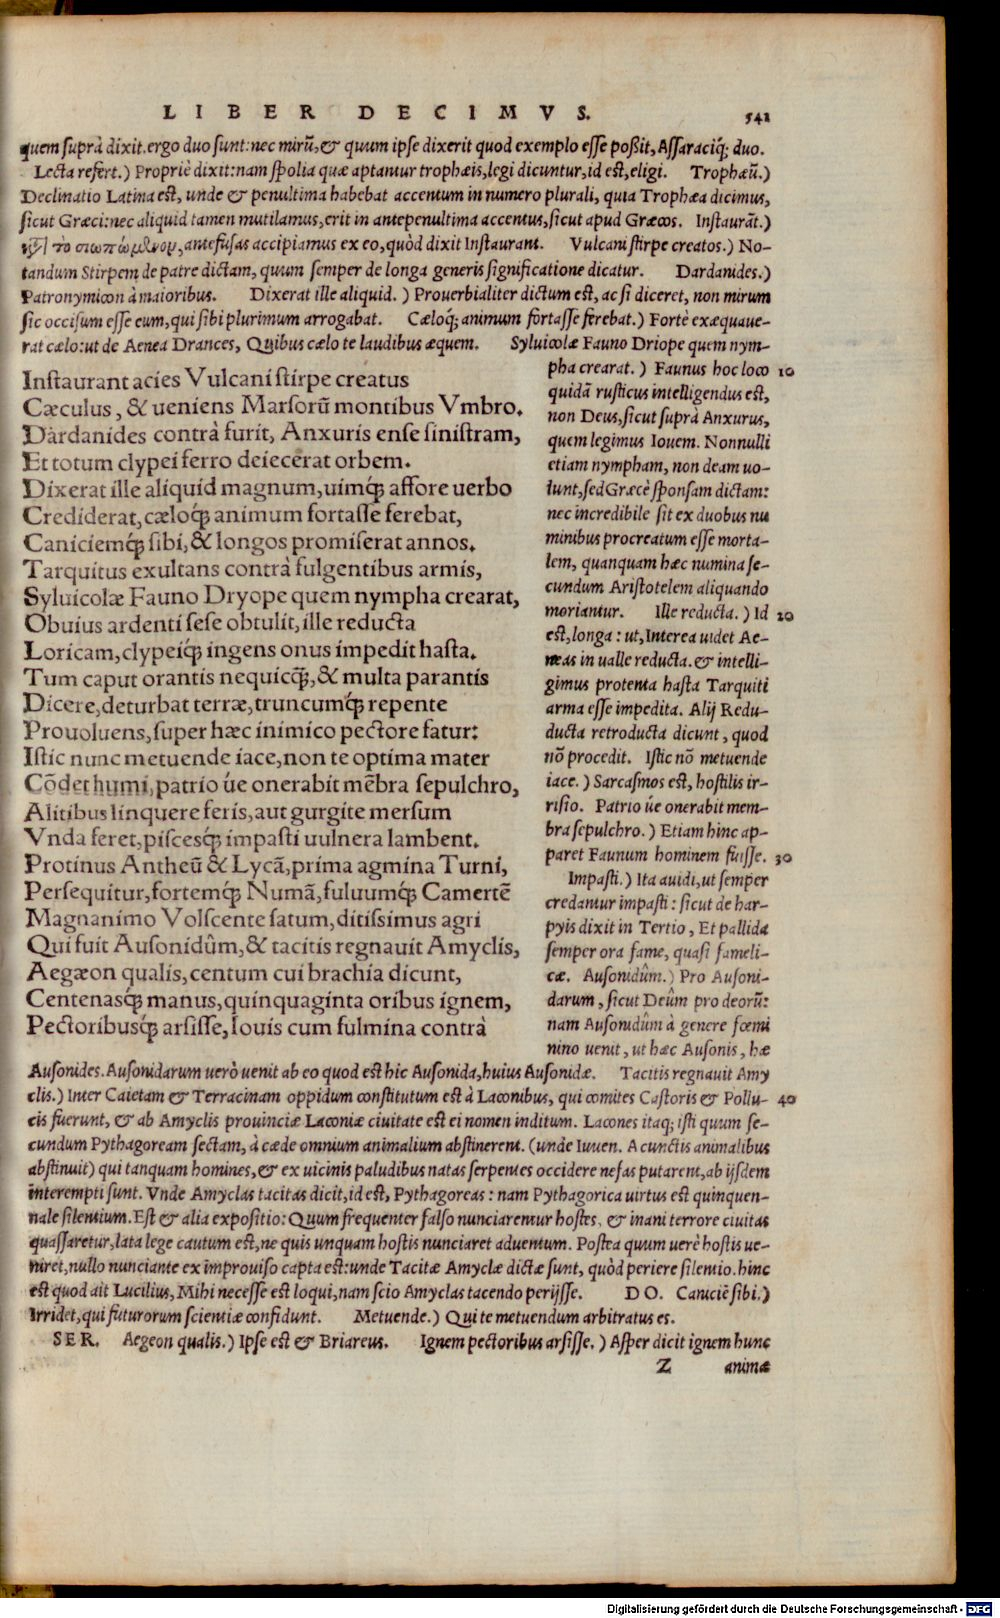 LIBER DECIMVS. 541
quem suprà dixit. ergo duo sunt: nec mirũ, & quum ipse dixerit quod exemplo esse possit, Assaraciq́; duo.
Lecta refert.) Propriè dixit: nam spolia quæ aptantur trophæis, legi dicuntur, id est, eligi. Trophæũ.)
Declinatio Latina est, unde & penultima habebat accentum in numero plurali, quia Trophæa dicimus,
sicut Græci: nec aliquid tamen mutilamus, erit in antepenultima accentus, sicut apud Græcos. Instaurãt.)
το σιωπώμενον, antefusas accipiamus ex eo, quòd dixit Instaurant. Vulcani stirpe creatos.) No-
tandum Stirpem de patre dictam, quum semper de longa generis significatione dicatur. Dardanides.)
Patronymicon à maioribus. Dixerat ille aliquid.) Prouerbialiter dictum est, ac si diceret, non mirum
sic occisum esse eum, qui sibi plurimum arrogabat. Cæloq́; animum fortasse ferebat.) Fortè exæquaue-
rat cælo: ut de Aenea Drances, Quibus cælo te laudibus æquem. Syluicolæ Fauno Driope quem nym-
Instaurant acies Vulcani stirpe creatus
Cæculus, & ueniens Marsorũ montibus Vmbro.
Dardanides contrà furit, Anxuris ense sinistram,
Et totum clypei ferro deiecerat orbem.
Dixerat ille aliquid magnum, uimq́; affore uerbo
Crediderat, cæloq́; animum fortasse ferebat,
Caniciemq́; sibi, & longos promiserat annos.
Tarquitus exultans contrà fulgentibus armis,
Syluicolæ Fauno Dryope quem nympha crearat,
Obuius ardenti sese obtulit, ille reducta
Loricam, clypeiq́; ingens onus impedit hasta.
Tum caput orantis nequicq̃;, & multa parantis
Dicere, deturbat terræ, truncumq́; repente
Prouoluens, super hæc inimico pectore fatur:
Istic nunc metuende iace, non te optima mater
Cõdet humi, patrio úe onerabit mẽbra sepulchro,
Alitibus linquere feris, aut gurgite mersum
Vnda feret, piscesq́; impasti uulnera lambent.
Protinus Antheũ & Lycã, prima agmina Turni,
Persequitur, fortemq́; Numã, fuluumq́; Camertẽ
Magnanimo Volscente satum, ditissimus agri
Qui fuit Ausonidûm, & tacitis regnauit Amyclis,
Aegæon qualis, centum cui brachia dicunt,
Centenasq́; manus, quinquaginta oribus ignem,
Pectoribusq́; arsisse, Iouis cum fulmina contrà
pha crearat.) Faunus hoc loco 10
quidã rusticus intelligendus est,
non Deus, sicut suprà Anxurus,
quem legimus Iouem. Nonnulli
etiam nympham, non deam uo-
lunt, sed Græcè sponsam dictam:
nec incredibile sit ex duobus nu
minibus procreatum esse morta-
lem, quanquam hæc numina se-
cundum Aristotelem aliquando
moriantur. Ille reducta.) Id 20
est, longa: ut, Interea uidet Ae-
neas in ualle reducta. & intelli-
gimus protenta hasta Tarquiti
arma esse impedita. Alij Redu-
ducta retroducta dicunt, quod
nõ procedit. Istic nõ metuende
iace.) Sarcasmos est, hostilis ir-
risio. Patrio úe onerabit mem-
bra sepulchro.) Etiam hinc ap-
paret Faunum hominem fuisse. 30
Impasti.) Ita auidi, ut semper
credantur impasti: sicut de har-
pyis dixit in Tertio, Et pallida
semper ora fame, quasi fameli-
cæ. Ausonidûm.) Pro Ausoni-
darum, sicut Deûm pro deorũ:
nam Ausonidûm à genere fœmi
nino uenit, ut hæc Ausonis, hæ
Ausonides. Ausonidarum uerò uenit ab eo quod est hic Ausonida, huius Ausonidæ. Tacitis regnauit Amy
clis.) Inter Caietam & Terracinam oppidum constitutum est à Laconibus, qui comites Castoris & Pollu- 40
cis fuerunt, & ab Amyclis prouinciæ Laconiæ ciuitate est ei nomen inditum. Lacones itaq; isti quum se-
cundum Pythagoream sectam, à cæde omnium animalium abstinerent. (unde Iuuen. A cunctis animalibus
abstinuit) qui tanquam homines, & ex uicinis paludibus natas serpentes occidere nefas putarent, ab ijsdem
interempti sunt. Vnde Amyclas tacitas dicit, id est, Pythagoreas: nam Pythagorica uirtus est quinquen-
nale silentium. Est & alia expositio: Quum frequenter falso nunciarentur hostes, & inani terrore ciuitas
quassaretur, lata lege cautum est, ne quis unquam hostis nunciaret aduentum. Postea quum uerè hostis ue-
niret, nullo nunciante ex improuiso capta est: unde Tacitæ Amyclæ dictæ sunt, quòd periere silentio. hinc
est quod ait Lucilius, Mihi necesse est loqui, nam scio Amyclas tacendo perijsse. DO. Caniciẽ sibi.)
Irridet, qui futurorum scientiæ confidunt. Metuende.) Qui te metuendum arbitratus es.
SER. Aegeon qualis.) Ipse est & Briareus. Ignem pectoribus arsisse.) Asper dicit ignem hunc
Z animæ
Digitalisierung gefördert durch die Deutsche Forschungsgemeinschaft - DFG